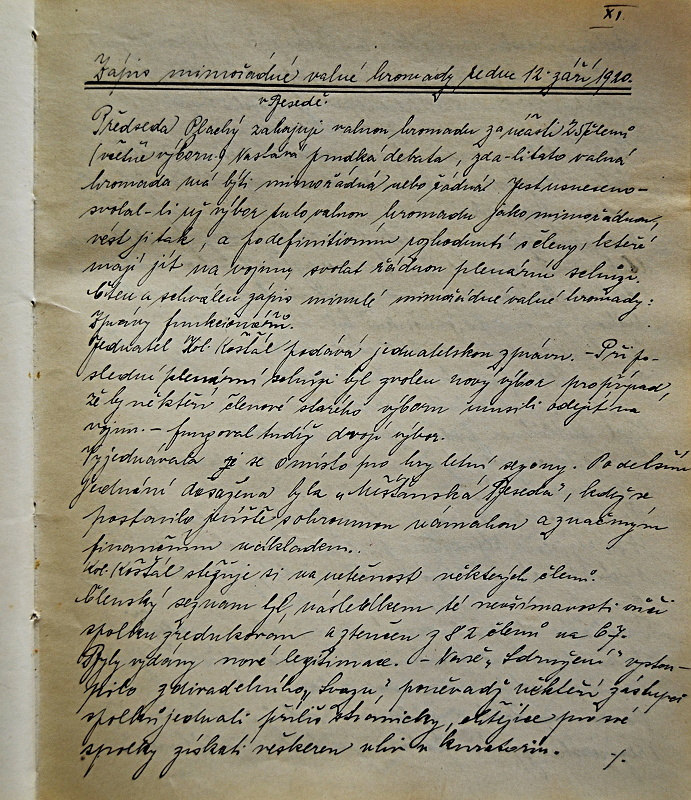 XI.
Zápis mimořádné valné hromady ze dne 12. září 1920.
v Besedě.
Předseda Plachý zahajuje valnou hromadu za účasti 25 členů
(včetně výboru) Nastává prudká debata, zda-li tato valná
hromada má býti mimořádná nebo řádná. Jest usneseno-
svolal-li již výbor tuto valnou hromadu jako mimořádnou,
vést ji tak, a po definitivním rozhodnutí s členy, kteří
mají jít na vojnu svolat řádnou plenární schůzi.
Čten a schválen zápis minulé mimořádné valné hromady:
Zprávy funkcionářů.
Jednatel Kol. Košťál podává jednatelskou zprávu. – Při po-
slední plenární schůzi byl zvolen nový výbor pro případ,
že by někteří členové starého výboru musili odejít na
vojnu. – fungoval tudíž dvojí výbor.
Vyjednávala se o místo pro hry letní sezony. Po delším
jednání dosažena byla „Měšťanská Beseda", když se
postavilo jeviště s ohromnou námahou a značným
finančním nákladem.
Kol. Košťál stěžuje si na netečnost některých členů.
Členský seznam byl, následkem té nevšímavosti vůči
spolku zredukován a ztenčen z 82 členů na 67.
Byly vydány nové legitimace. – Naše „Sdružení" vystou-
pilo z divadelního „Svazu", poněvadž někteří zástupci
spolků jednali příliš stranicky, chtějíce pro své
spolky získati veškeren vliv v kuratoriu.
./.